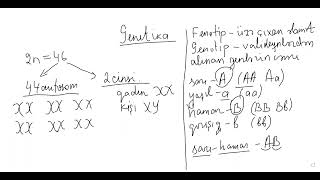 Genetika
2n=46
44 autosom
XX XX XX
XX XX XX
2 cinsi
qadın XX
kişi XY
Fenotip - üzə çıxan əlamət
Genotip - valideynlərdən
alınan genlərin cəmi
sarı - A (AA Aa)
yaşıl - a (aa)
hamar - B (BB Bb)
qırışıq - b (bb)
sarı-hamar - AB